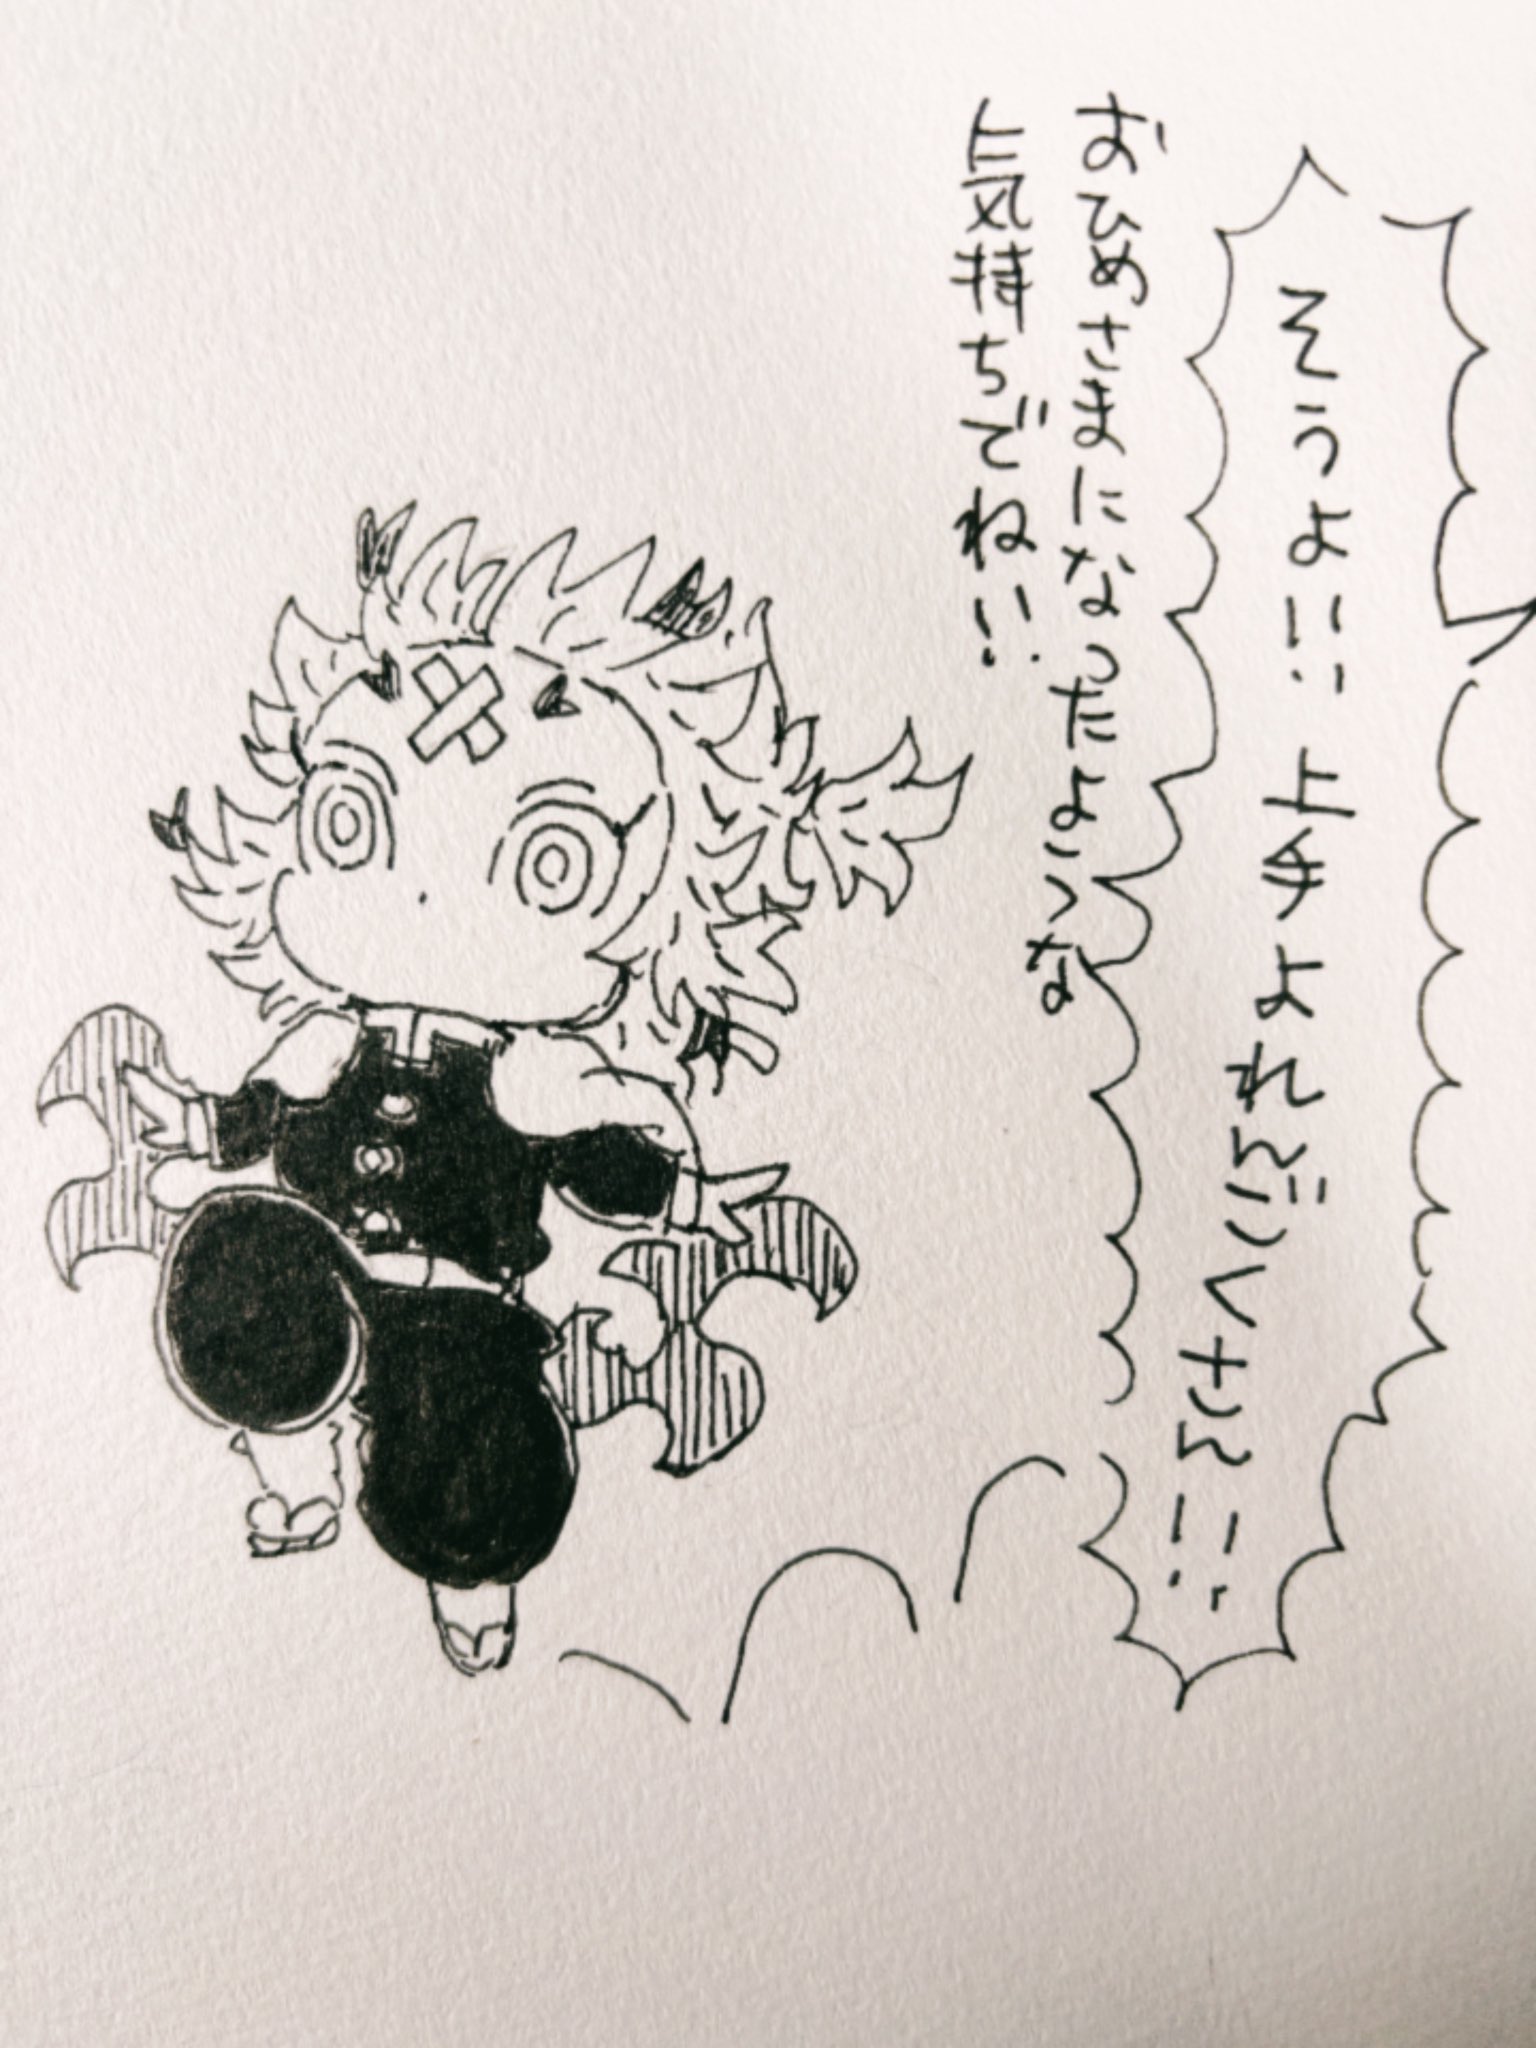 そうよ!! 上手よれんごくさん!!
おひめさまになったような
気持ちでね!!